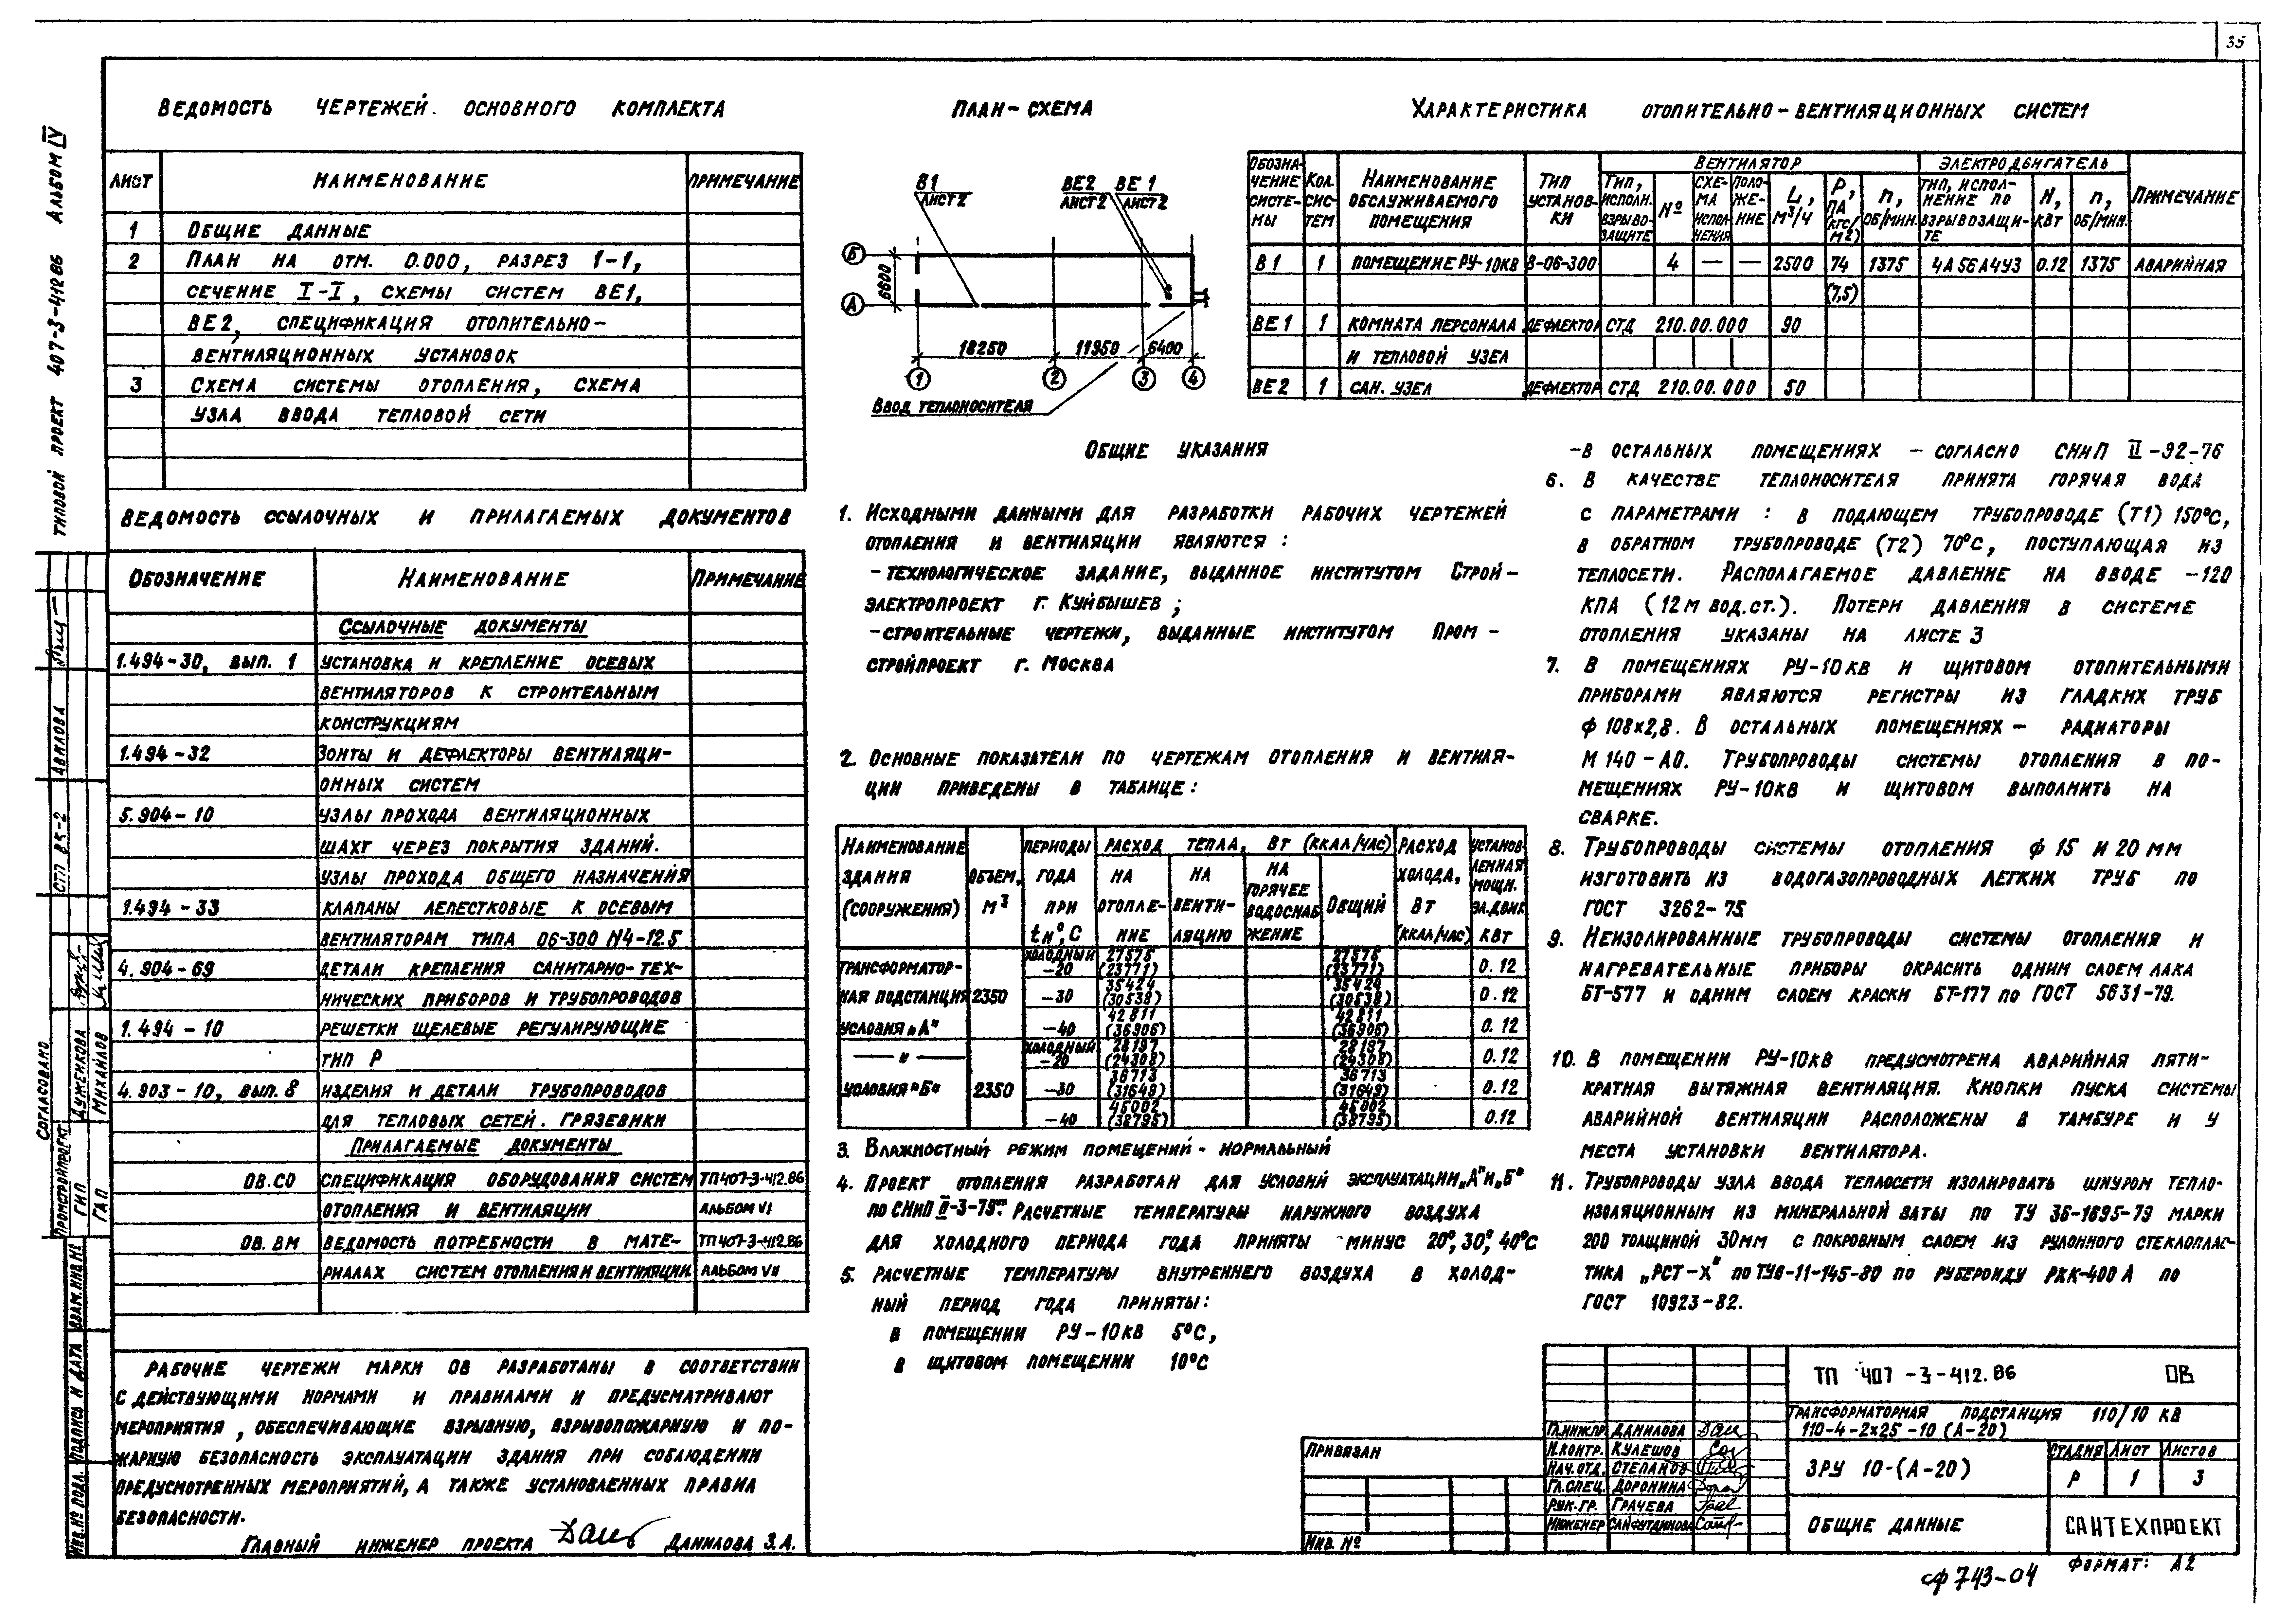 35
ТИПОВОЙ ПРОЕКТ 407-3-412.86 АЛЬБОМ IV
ВЕДОМОСТЬ ЧЕРТЕЖЕЙ ОСНОВНОГО КОМПЛЕКТА
ЛИСТ НАИМЕНОВАНИЕ ПРИМЕЧАНИЕ
1 ОБЩИЕ ДАННЫЕ
2 ПЛАН НА ОТМ. 0.000, РАЗРЕЗ 1-1,
СЕЧЕНИЕ I-I, СХЕМЫ СИСТЕМ ВЕ1,
ВЕ2, СПЕЦИФИКАЦИЯ ОТОПИТЕЛЬНО-
ВЕНТИЛЯЦИОННЫХ УСТАНОВОК
3 СХЕМА СИСТЕМЫ ОТОПЛЕНИЯ, СХЕМА
УЗЛА ВВОДА ТЕПЛОВОЙ СЕТИ
ВЕДОМОСТЬ ССЫЛОЧНЫХ И ПРИЛАГАЕМЫХ ДОКУМЕНТОВ
ОБОЗНАЧЕНИЕ НАИМЕНОВАНИЕ ПРИМЕЧАНИЕ
ССЫЛОЧНЫЕ ДОКУМЕНТЫ
1.494-30, ВЫП. 1 УСТАНОВКА И КРЕПЛЕНИЕ ОСЕВЫХ
ВЕНТИЛЯТОРОВ К СТРОИТЕЛЬНЫМ
КОНСТРУКЦИЯМ
1.494-32 ЗОНТЫ И ДЕФЛЕКТОРЫ ВЕНТИЛЯЦИ-
ОННЫХ СИСТЕМ
5.904-10 УЗЛЫ ПРОХОДА ВЕНТИЛЯЦИОННЫХ
ШАХТ ЧЕРЕЗ ПОКРЫТИЯ ЗДАНИЙ.
УЗЛЫ ПРОХОДА ОБЩЕГО НАЗНАЧЕНИЯ
1.494-33 КЛАПАНЫ ЛЕПЕСТКОВЫЕ К ОСЕВЫМ
ВЕНТИЛЯТОРАМ ТИПА 06-300 N4-12.5
4.904-69 ДЕТАЛИ КРЕПЛЕНИЯ САНИТАРНО-ТЕХ-
НИЧЕСКИХ ПРИБОРОВ И ТРУБОПРОВОДОВ
1.494-10 РЕШЕТКИ ЩЕЛЕВЫЕ РЕГУЛИРУЮЩИЕ
ТИП Р
4.903-10, ВЫП. 8 ИЗДЕЛИЯ И ДЕТАЛИ ТРУБОПРОВОДОВ
ДЛЯ ТЕПЛОВЫХ СЕТЕЙ. ГРЯЗЕВИКИ
ПРИЛАГАЕМЫЕ ДОКУМЕНТЫ
ОВ.СО СПЕЦИФИКАЦИЯ ОБОРУДОВАНИЯ СИСТЕМ ТП407-3-412.86
ОТОПЛЕНИЯ И ВЕНТИЛЯЦИИ АЛЬБОМ VI
ОВ.ВМ ВЕДОМОСТЬ ПОТРЕБНОСТИ В МАТЕ- ТП407-3-412.86
РИАЛАХ СИСТЕМ ОТОПЛЕНИЯ И ВЕНТИЛЯЦИИ АЛЬБОМ VII
РАБОЧИЕ ЧЕРТЕЖИ МАРКИ ОВ РАЗРАБОТАНЫ В СООТВЕТСТВИИ
С ДЕЙСТВУЮЩИМИ НОРМАМИ И ПРАВИЛАМИ И ПРЕДУСМАТРИВАЮТ
МЕРОПРИЯТИЯ, ОБЕСПЕЧИВАЮЩИЕ ВЗРЫВНУЮ, ВЗРЫВОПОЖАРНУЮ И ПО-
ЖАРНУЮ БЕЗОПАСНОСТЬ ЭКСПЛУАТАЦИИ ЗДАНИЯ ПРИ СОБЛЮДЕНИИ
ПРЕДУСМОТРЕННЫХ МЕРОПРИЯТИЙ, А ТАКЖЕ УСТАНОВЛЕННЫХ ПРАВИЛ
БЕЗОПАСНОСТИ.
ГЛАВНЫЙ ИНЖЕНЕР ПРОЕКТА ДАНИЛОВА З.А.
СТП ВК-2 АВИЛОВА
СОГЛАСОВАНО
ПРОМСТРОЙПРОЕКТ
ГИП ДУЖЕНКОВА
ГАП МИХАЙЛОВ
ИНВ.№ ПОДЛ. ПОДПИСЬ И ДАТА ВЗАМ.ИНВ.№
ПЛАН-СХЕМА
В1 ЛИСТ 2
ВЕ2 ЛИСТ 2
ВЕ1 ЛИСТ 2
Б
А
6600
18250 11950 6400
1 2 3 4
ВВОД ТЕПЛОНОСИТЕЛЯ
ХАРАКТЕРИСТИКА ОТОПИТЕЛЬНО-ВЕНТИЛЯЦИОННЫХ СИСТЕМ
ОБОЗНА-ЧЕНИЕ СИСТЕ-МЫ КОЛ. СИС-ТЕМ НАИМЕНОВАНИЕ ОБСЛУЖИВАЕМОГО ПОМЕЩЕНИЯ ТИП УСТАНОВ-КИ ВЕНТИЛЯТОР ЭЛЕКТРОДВИГАТЕЛЬ ПРИМЕЧАНИЕ
ТИП, ИСПОЛН. ВЗРЫВО-ЗАЩИТЕ № СХЕ-МА ИСПОЛ-НЕНИЯ ПОЛО-ЖЕ-НИЕ L, М³/Ч Р, ПА (КГС/М2) n, ОБ/МИН. ТИП, ИСПОЛ-НЕНИЕ ПО ВЗРЫВОЗАЩИ-ТЕ N, КВТ n, ОБ/МИН.
В1 1 ПОМЕЩЕНИЕ РУ-10КВ В-06-300 4 — — 2500 74 (7,5) 1375 4А56А4У3 0.12 1375 АВАРИЙНАЯ
ВЕ1 1 КОМНАТА ПЕРСОНАЛА ДЕФЛЕКТОР СТД 210.00.000 90
И ТЕПЛОВОЙ УЗЕЛ
ВЕ2 1 САН. УЗЕЛ ДЕФЛЕКТОР СТД 210.00.000 50
ОБЩИЕ УКАЗАНИЯ
1. ИСХОДНЫМИ ДАННЫМИ ДЛЯ РАЗРАБОТКИ РАБОЧИХ ЧЕРТЕЖЕЙ
ОТОПЛЕНИЯ И ВЕНТИЛЯЦИИ ЯВЛЯЮТСЯ:
- ТЕХНОЛОГИЧЕСКОЕ ЗАДАНИЕ, ВЫДАННОЕ ИНСТИТУТОМ СТРОЙ-
ЭЛЕКТРОПРОЕКТ Г. КУЙБЫШЕВ;
- СТРОИТЕЛЬНЫЕ ЧЕРТЕЖИ, ВЫДАННЫЕ ИНСТИТУТОМ ПРОМ-
СТРОЙПРОЕКТ Г. МОСКВА
2. ОСНОВНЫЕ ПОКАЗАТЕЛИ ПО ЧЕРТЕЖАМ ОТОПЛЕНИЯ И ВЕНТИЛЯ-
ЦИИ ПРИВЕДЕНЫ В ТАБЛИЦЕ:
НАИМЕНОВАНИЕ ЗДАНИЯ (СООРУЖЕНИЯ) ОБЪЕМ, М³ ПЕРИОДЫ ГОДА ПРИ tн°, С РАСХОД ТЕПЛА, ВТ (ККАЛ/ЧАС) РАСХОД ХОЛОДА, ВТ (ККАЛ/ЧАС) УСТАНОВ-ЛЕННАЯ МОЩН. ЭЛ.ДВИГ. КВТ
НА ОТОПЛЕ-НИЕ НА ВЕНТИ-ЛЯЦИЮ НА ГОРЯЧЕЕ ВОДОСНАБ-ЖЕНИЕ ОБЩИЙ
ТРАНСФОРМАТОР- ХОЛОДНЫЙ -20 27575 (23771) 27575 (23771) 0.12
НАЯ ПОДСТАНЦИЯ 2350 -30 35424 (30538) 35424 (30538) 0.12
УСЛОВИЯ „А" -40 42811 (36906) 42811 (36906) 0.12
— " — ХОЛОДНЫЙ -20 28197 (24308) 28197 (24308) 0.12
УСЛОВИЯ "Б" 2350 -30 36713 (31649) 36713 (31649) 0.12
-40 45002 (38795) 45002 (38795) 0.12
3. ВЛАЖНОСТНЫЙ РЕЖИМ ПОМЕЩЕНИЙ - НОРМАЛЬНЫЙ
4. ПРОЕКТ ОТОПЛЕНИЯ РАЗРАБОТАН ДЛЯ УСЛОВИЙ ЭКСПЛУАТАЦИИ „А" И „Б"
ПО СНиП II-3-79**. РАСЧЕТНЫЕ ТЕМПЕРАТУРЫ НАРУЖНОГО ВОЗДУХА
ДЛЯ ХОЛОДНОГО ПЕРИОДА ГОДА ПРИНЯТЫ МИНУС 20°, 30°, 40°С
5. РАСЧЕТНЫЕ ТЕМПЕРАТУРЫ ВНУТРЕННЕГО ВОЗДУХА В ХОЛОД-
НЫЙ ПЕРИОД ГОДА ПРИНЯТЫ:
В ПОМЕЩЕНИИ РУ-10КВ 5°С,
В ЩИТОВОМ ПОМЕЩЕНИИ 10°С
- В ОСТАЛЬНЫХ ПОМЕЩЕНИЯХ - СОГЛАСНО СНиП II-92-76
6. В КАЧЕСТВЕ ТЕПЛОНОСИТЕЛЯ ПРИНЯТА ГОРЯЧАЯ ВОДА
С ПАРАМЕТРАМИ: В ПОДАЮЩЕМ ТРУБОПРОВОДЕ (Т1) 150°С,
В ОБРАТНОМ ТРУБОПРОВОДЕ (Т2) 70°С, ПОСТУПАЮЩАЯ ИЗ
ТЕПЛОСЕТИ. РАСПОЛАГАЕМОЕ ДАВЛЕНИЕ НА ВВОДЕ -120
КПА (12М ВОД.СТ.). ПОТЕРИ ДАВЛЕНИЯ В СИСТЕМЕ
ОТОПЛЕНИЯ УКАЗАНЫ НА ЛИСТЕ 3
7. В ПОМЕЩЕНИЯХ РУ-10КВ И ЩИТОВОМ ОТОПИТЕЛЬНЫМИ
ПРИБОРАМИ ЯВЛЯЮТСЯ РЕГИСТРЫ ИЗ ГЛАДКИХ ТРУБ
ф 108х2,8. В ОСТАЛЬНЫХ ПОМЕЩЕНИЯХ - РАДИАТОРЫ
М140-АО. ТРУБОПРОВОДЫ СИСТЕМЫ ОТОПЛЕНИЯ В ПО-
МЕЩЕНИЯХ РУ-10КВ И ЩИТОВОМ ВЫПОЛНИТЬ НА
СВАРКЕ.
8. ТРУБОПРОВОДЫ СИСТЕМЫ ОТОПЛЕНИЯ ф 15 И 20 ММ
ИЗГОТОВИТЬ ИЗ ВОДОГАЗОПРОВОДНЫХ ЛЕГКИХ ТРУБ ПО
ГОСТ 3262-75.
9. НЕИЗОЛИРОВАННЫЕ ТРУБОПРОВОДЫ СИСТЕМЫ ОТОПЛЕНИЯ И
НАГРЕВАТЕЛЬНЫЕ ПРИБОРЫ ОКРАСИТЬ ОДНИМ СЛОЕМ ЛАКА
БТ-577 И ОДНИМ СЛОЕМ КРАСКИ БТ-177 ПО ГОСТ 5631-79.
10. В ПОМЕЩЕНИИ РУ-10КВ ПРЕДУСМОТРЕНА АВАРИЙНАЯ ПЯТИ-
КРАТНАЯ ВЫТЯЖНАЯ ВЕНТИЛЯЦИЯ. КНОПКИ ПУСКА СИСТЕМЫ
АВАРИЙНОЙ ВЕНТИЛЯЦИИ РАСПОЛОЖЕНЫ В ТАМБУРЕ И У
МЕСТА УСТАНОВКИ ВЕНТИЛЯТОРА.
11. ТРУБОПРОВОДЫ УЗЛА ВВОДА ТЕПЛОСЕТИ ИЗОЛИРОВАТЬ ШНУРОМ ТЕПЛО-
ИЗОЛЯЦИОННЫМ ИЗ МИНЕРАЛЬНОЙ ВАТЫ ПО ТУ 36-1695-79 МАРКИ
200 ТОЛЩИНОЙ 30ММ С ПОКРОВНЫМ СЛОЕМ ИЗ РУЛОННОГО СТЕКЛОПЛАС-
ТИКА „РСТ-Х" ПО ТУ6-11-145-80 ПО РУБЕРОИДУ РКК-400А ПО
ГОСТ 10923-82.
ПРИВЯЗАН
ИНВ. №
ГЛ.ИНЖ.ПР. ДАНИЛОВА
Н.КОНТР. КУЛЕШОВ
НАЧ.ОТД. СТЕПАНОВ
ГЛ.СПЕЦ. ДОРОНИНА
РУК.ГР. ГРАЧЕВА
ИНЖЕНЕР САЙФУТДИНОВА
ТП 407-3-412.86 ОВ
ТРАНСФОРМАТОРНАЯ ПОДСТАНЦИЯ 110/10 КВ
110-4-2х25-10 (А-20)
ЗРУ 10-(А-20)
СТАДИЯ ЛИСТ ЛИСТОВ
Р 1 3
ОБЩИЕ ДАННЫЕ
САНТЕХПРОЕКТ
ФОРМАТ: А2
сф 743-04